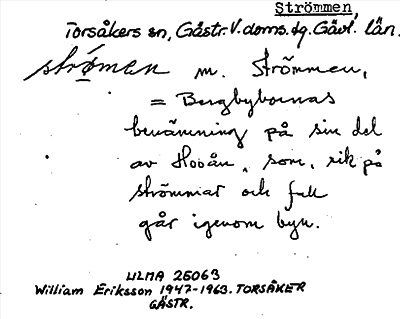 Strömmen
Torsåkers sn, Gästr. V. doms. tg. Gävl. län.
strömen m. Strömmen,
= Bergbybornas
benämning på sin del
av Hoån, som, rik på
strömmar och fall
går igenom byn.
ULMA 25063
William Eriksson 1947-1963. TORSÅKER
GÄSTR.